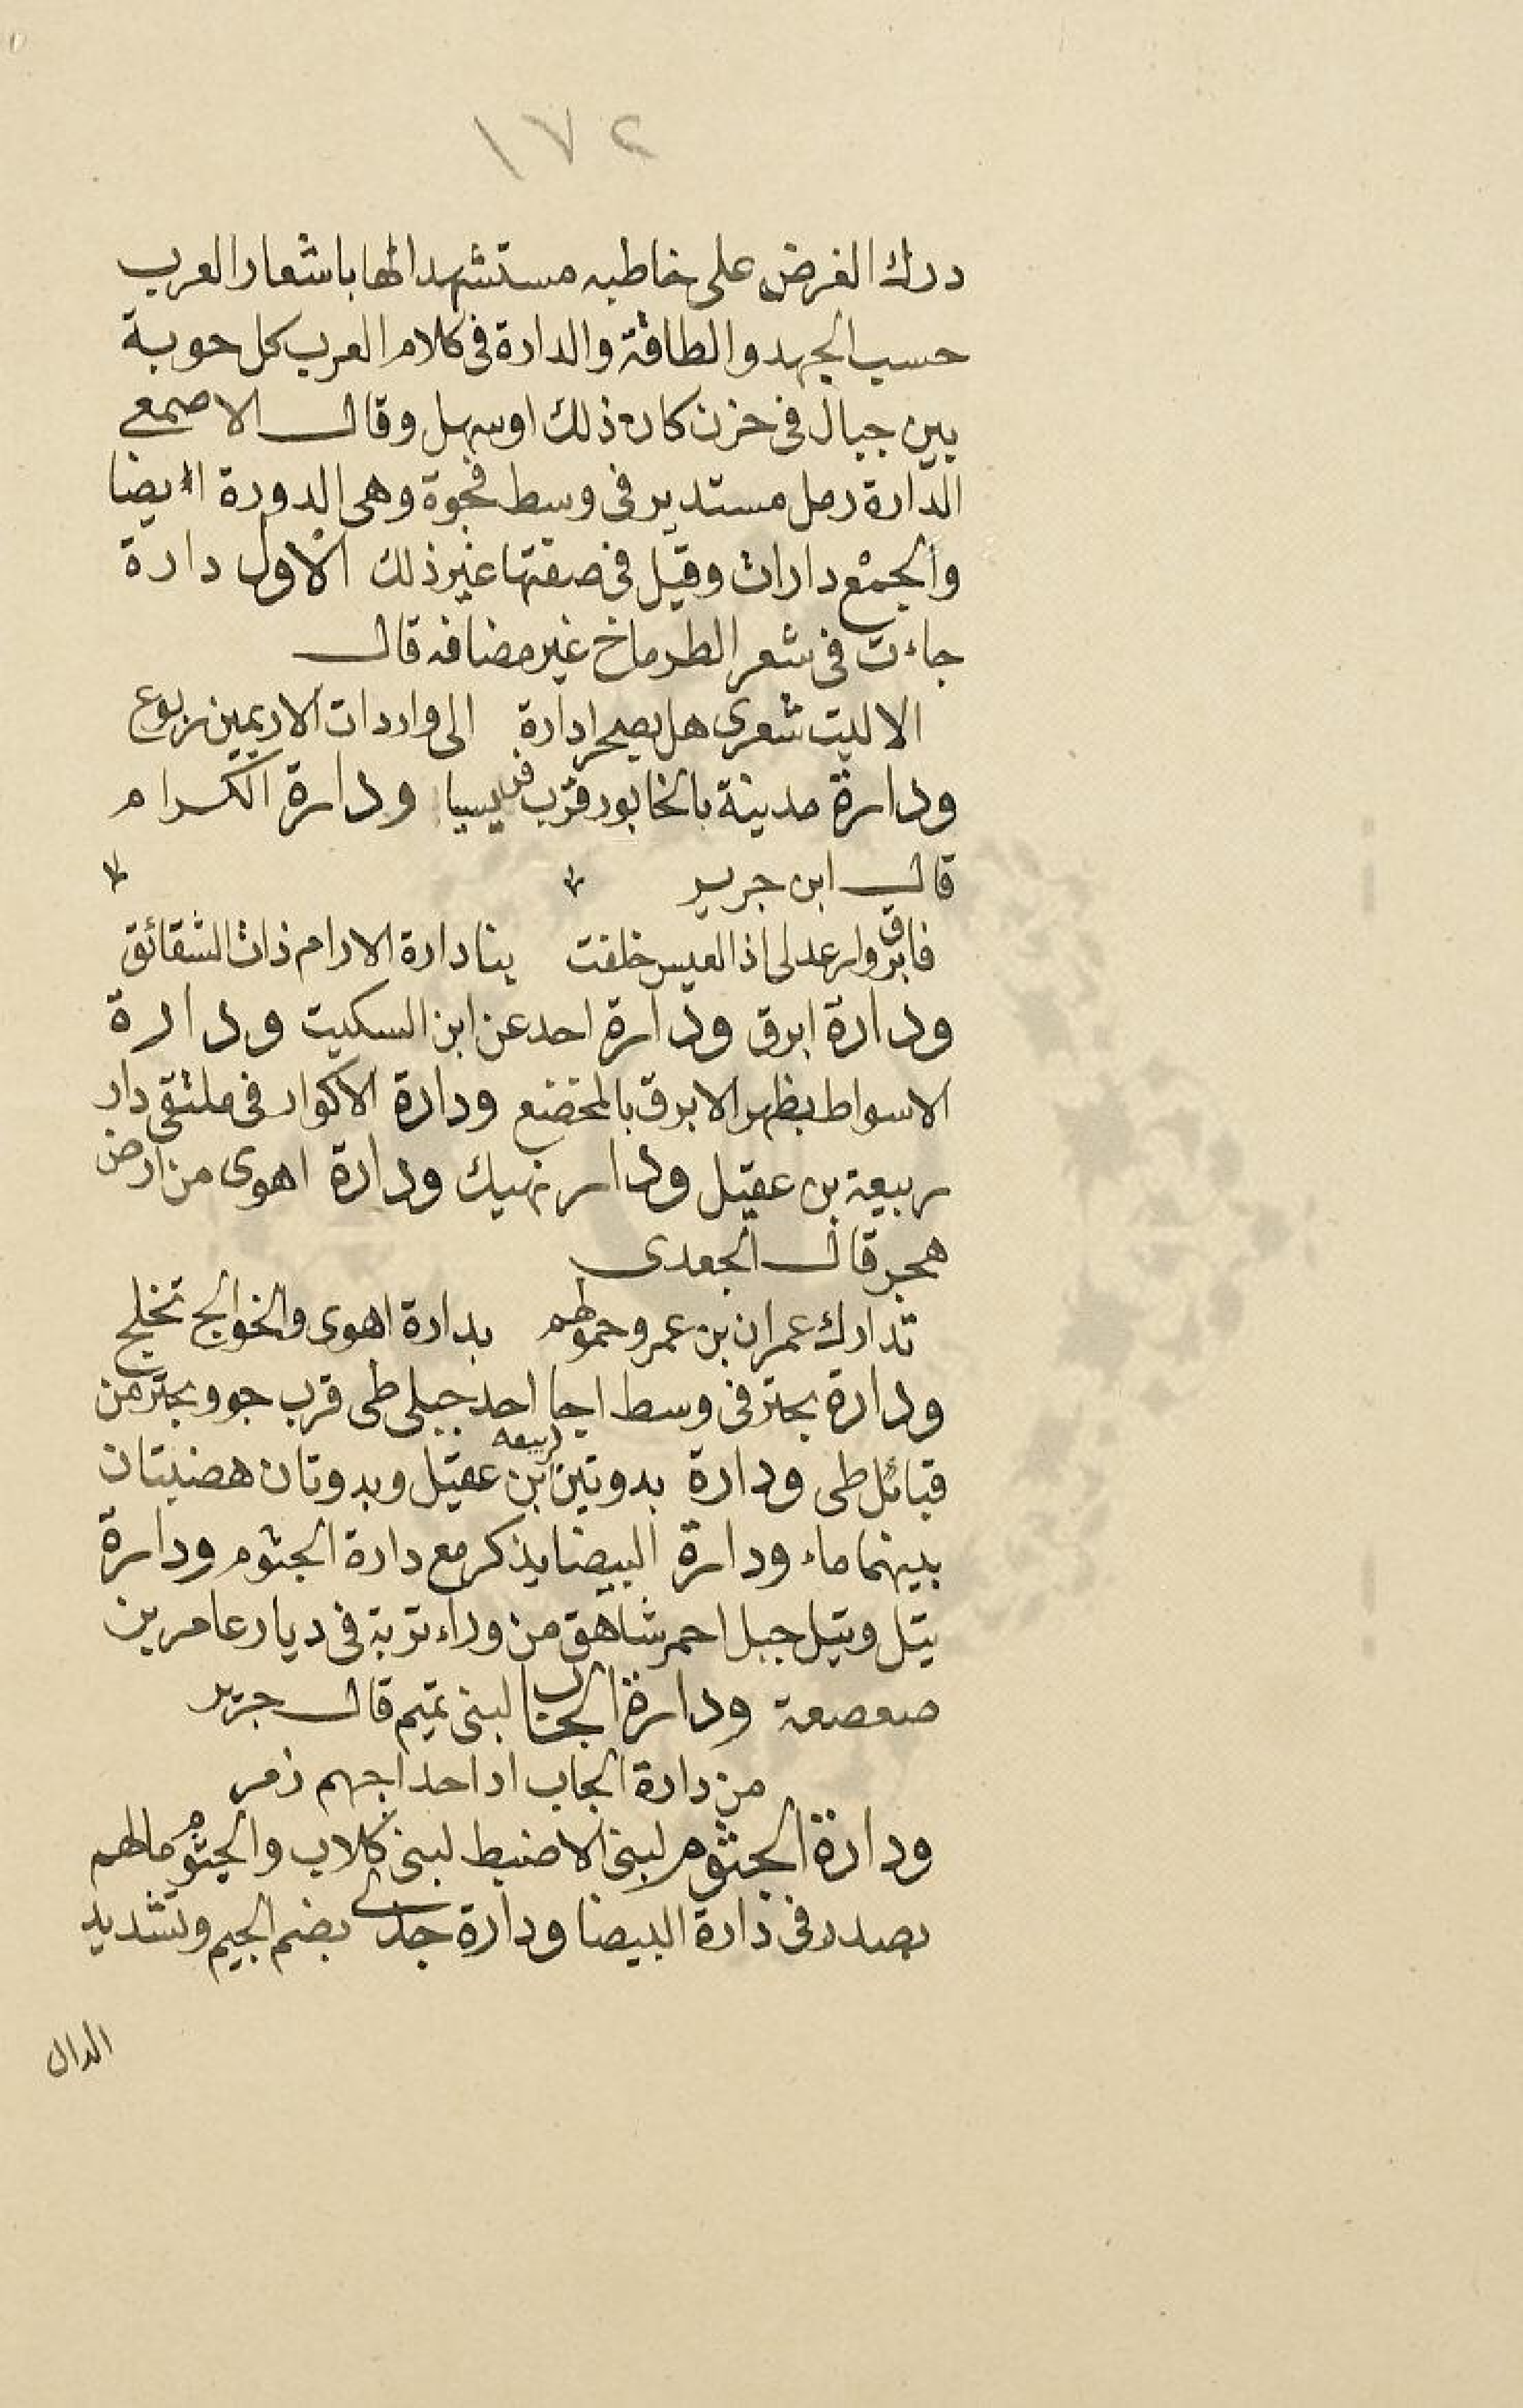 ١٧٢
درك الغرض على خاطبه مستشهدا لها باشعار العرب
حسب الجهد والطاقة والدارة فى كلام العرب كل جوبة
بين جبال فى حزن كان ذلك اوسهل وقال الاصمعى
الدارة رمل مستدير فى وسط فجوة وهى الدورة ايضا
والجمع دارات وقيل فى صفتها غير ذلك الاول دارة
جاءت فى شعر الطرماخ غير مضافه قال
الا ليت شعرى هل بصحرا دارة الى واردات الاريمين ربوع
ودارة مدينة بالخابور قرب ودارة الكرام
قال ابن جرير
فابرق وارعد لى اذا العيس خلفت بنا دارة الارام ذات الشقائق
ودارة ابرق ودارة احد عن ابن السكيت ودارة
الاسواط بظهر الابرق بالمخضع ودارة الاكوار فى ملتقى دار
ربيعة بن عقيل ودار نهيك ودارة اهوى من ارض
هجر قال الجعدى
تدارك عمران بن عمرو حموطهم بدارة اهوى والخوالج تخلج
ودارة بحتر فى وسط اجا احد جبلى طى قرب جو وبحتر من
قبائل طى ودارة بدوتين ربيعه ابن عقيل وبدوتان هضبتان
بينهما ماء ودارة البيضا يذكر مع دارة الجثوم ودارة
يتل ويتيل جبل احمر شاهق من وراء تربة فى ديار عامر بن
صعصعة ودارة الجناب لبنى تميم قال جرير
من دارة الجاب اذ احداجهم زمر
ودارة الجثوم لبنى الاضبط لبنى كلاب والجثوم ما لهم
يصدر فى دارة البيضا ودارة جدى بضم الجيم وتشديد
الدال